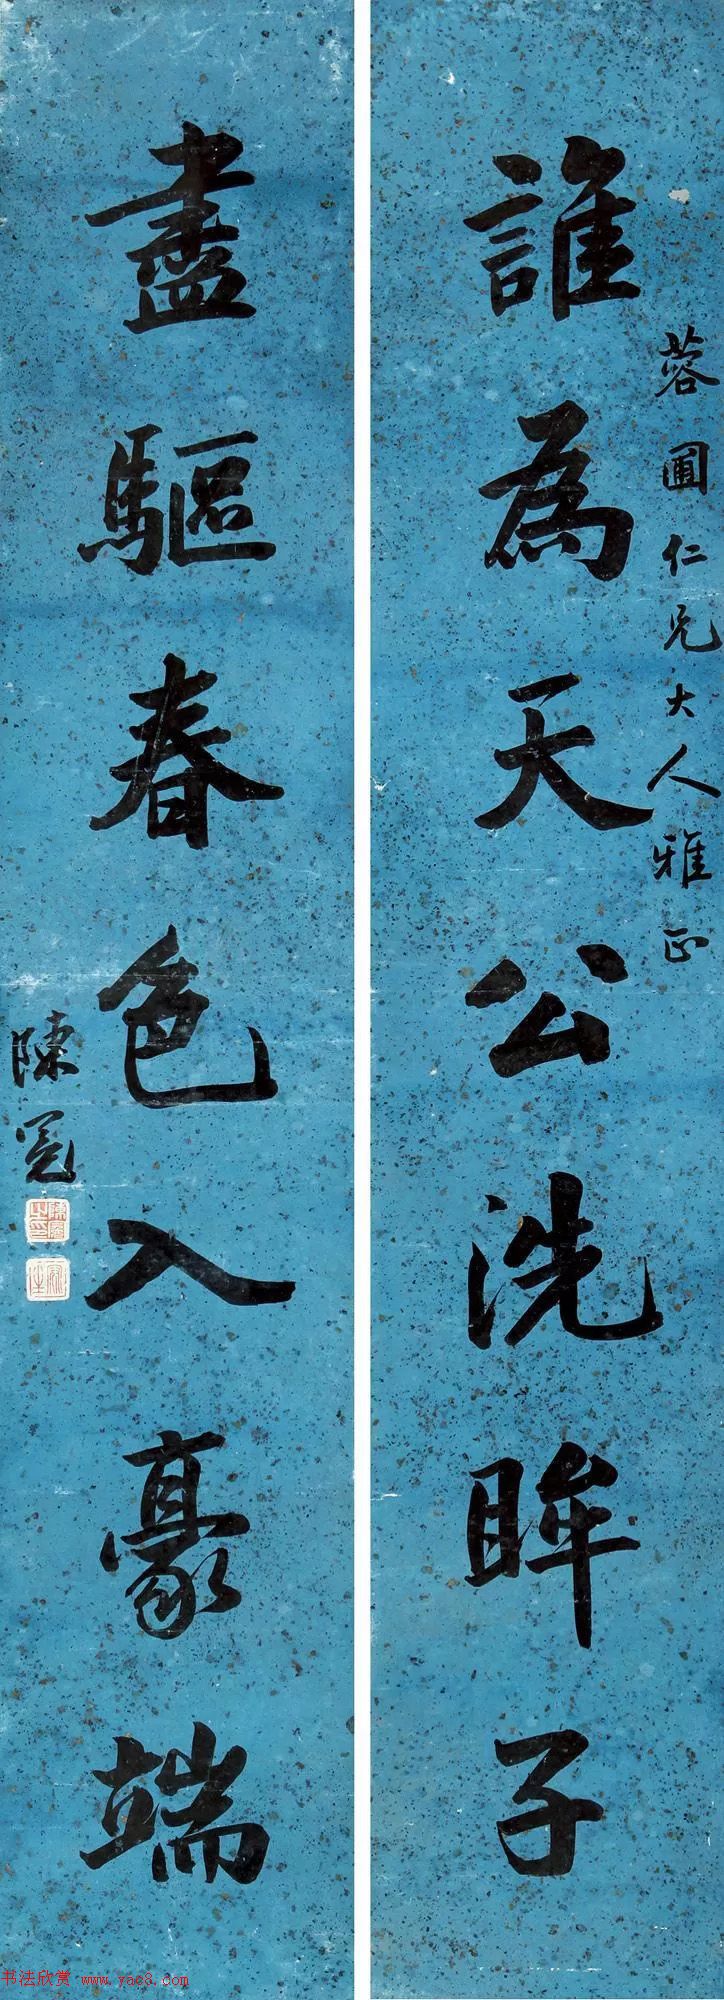 蓉圃仁兄大人雅正
誰為天公洗眸子
盡驅春色入豪端
陳冕
书法欣赏 www.yac8.com